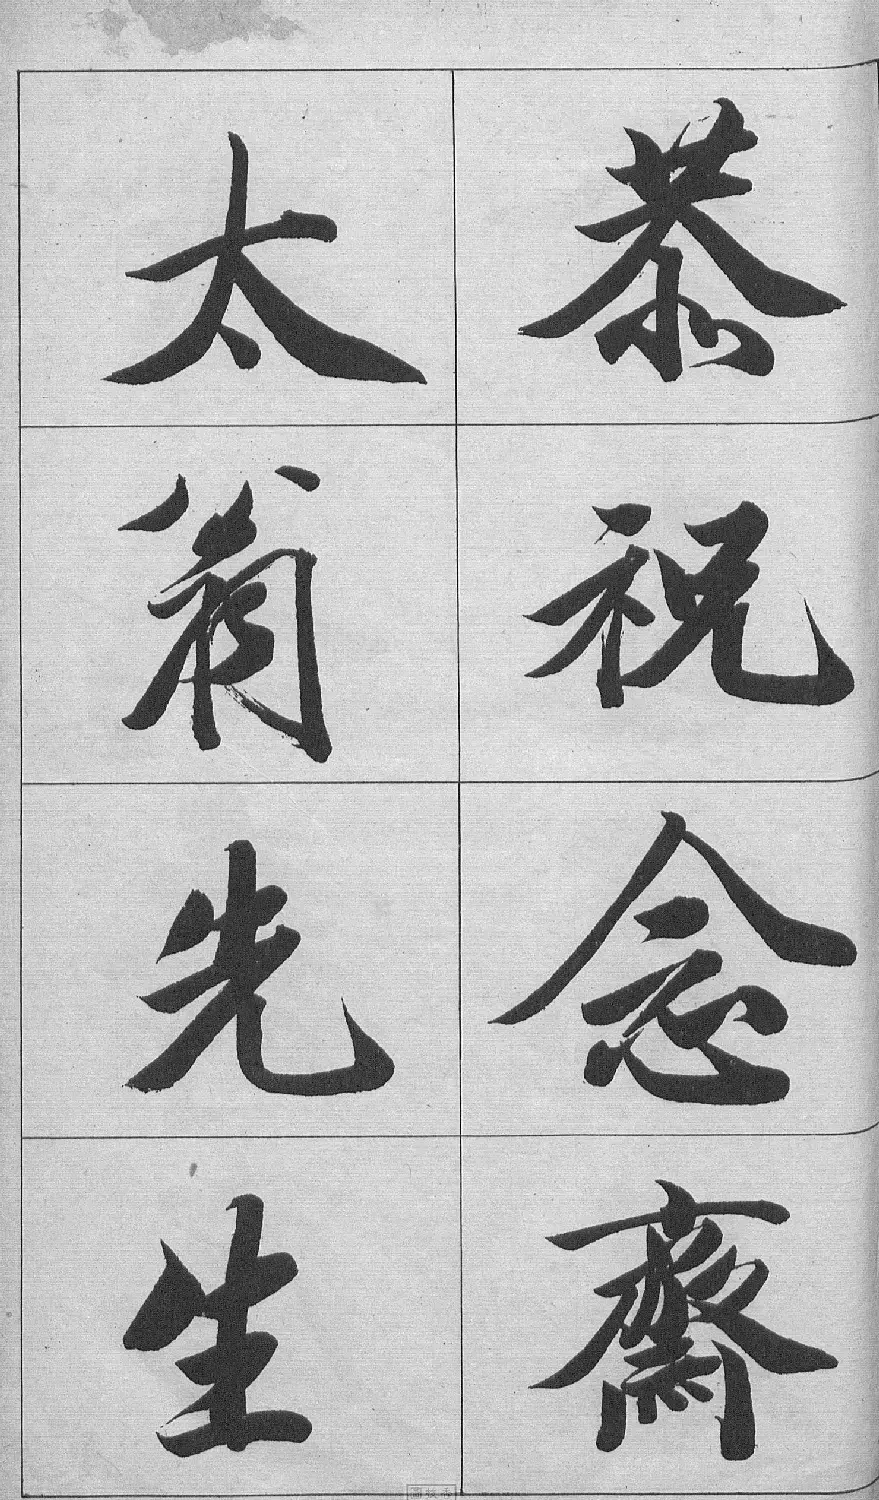 恭祝念齋
太翁先生